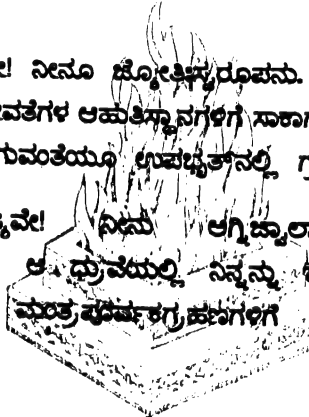 ನೀನೂ ಜ್ಯೋತಿಃಸ್ವರೂಪನು.
ವತೆಗಳ ಆಹುತಿಸ್ಥಾನಗಳಿಗೆ ಸಾಕಾಗ
ಗುವಂತೆಯೂ ಉಪಭೃತ್‌ನಲ್ಲಿ
ವೇ! ನೀನು ಅಗ್ನಿಜ್ವಾಲಾ
ಆ ಧ್ರುವೆಯಲ್ಲಿ ನಿನ್ನನ್ನು
ಮಂತ್ರಪೂರ್ವಕಗ್ರಹಣಗಳಿಗೆ